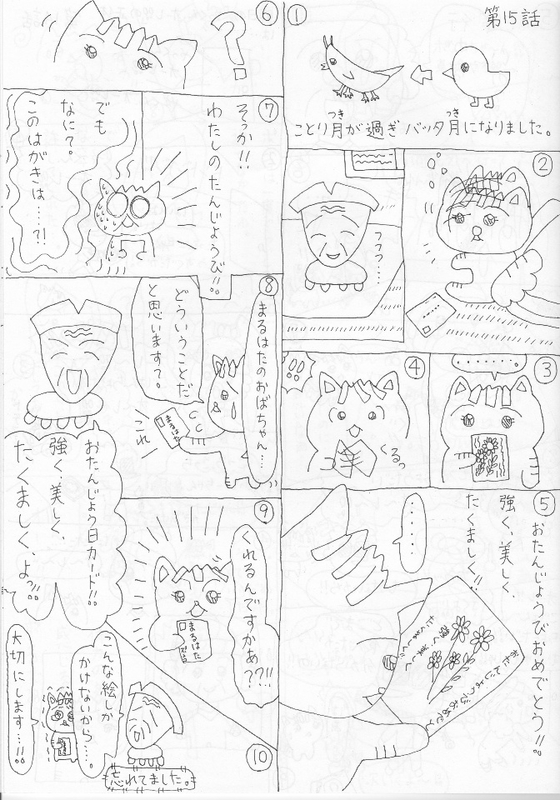 第15話
①
ことり月が過ぎバッタ月になりました。
つき
つき
②
フフフ…
③
……
④
くるっ
⑤
おたんじょうびおめでとう!!
強く、美しく、
たくましく!!
……
⑥
?
⑦
そっか!!
わたしのたんじょうび!!
でも
なに?
このはがきは……?!
⑧
まるはたのおばちゃん…
どういうことだ
と思います?
これ
まるはた
おたんじょう日カード!!
強く、美しく、
たくましく、よっ!!
⑨
くれるんですかあ??!!
まるはた
⑩
こんな絵しか
かけないから…。
大切にします…!!
忘れてました。